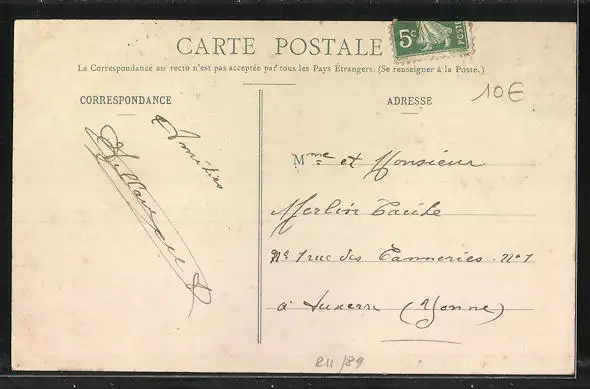 CARTE POSTALE
5c
La Correspondance au recto n'est pas acceptée par tous les Pays Étrangers. (Se renseigner à la Poste.)
10€
CORRESPONDANCE
ADRESSE
Amitiés
Mme et Monsieur
Merlin
rue des Tanneries. No 1
à Auxerre (Yonne)
211/89